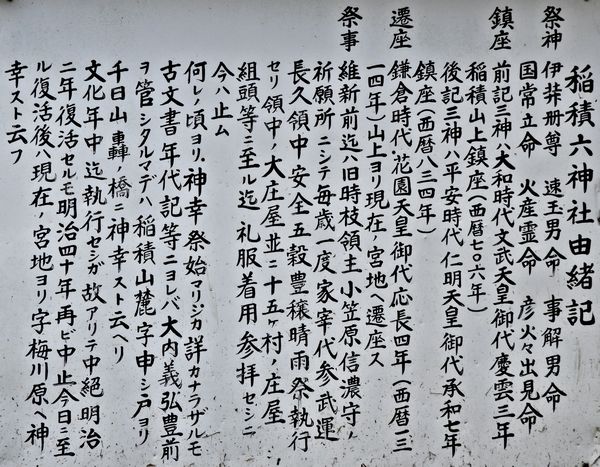 稲積六神社由緒記
祭神 伊弉册尊 速玉男命 事解男命
国常立命 火産霊命 彦火々出見命
鎮座 前記三神ハ大和時代文武天皇御代慶雲三年
稲積山上鎮座(西暦七〇六年)
後記三神ハ平安時代仁明天皇御代承和七年
鎮座(西暦八三四年)
遷座 鎌倉時代花園天皇御代応長四年(西暦一三
一四年)山上ヨリ現在ノ宮地ヘ遷座ス
祭事 維新前迄ハ旧時枝領主小笠原信濃守ノ
祈願所ニシテ毎歳一度家宰代参武運
長久領中安全五穀豊穣晴雨祭執行
セリ領中ノ大庄屋並ニ十五ヶ村ノ庄屋
組頭等ニ至ル迄礼服着用参拝セシニ
今ハ止ム
何レノ頃ヨリノ神幸祭始マリジカ詳カナラザルモ
古文書年代記等ニヨレバ大内義弘豊前
ヲ管シタルイデハ稲積山麓字申シ戸ヨリ
千日山轟ノ橋ニ神幸スト云ヘリ
文化年中迄執行セシガ故アリテ中絶明治
二年復活セルモ明治四十年再ビ中止今日ニ至
ル復活後ハ現在ノ宮地ヨリ字梅川原ヘ神
幸スト云フ